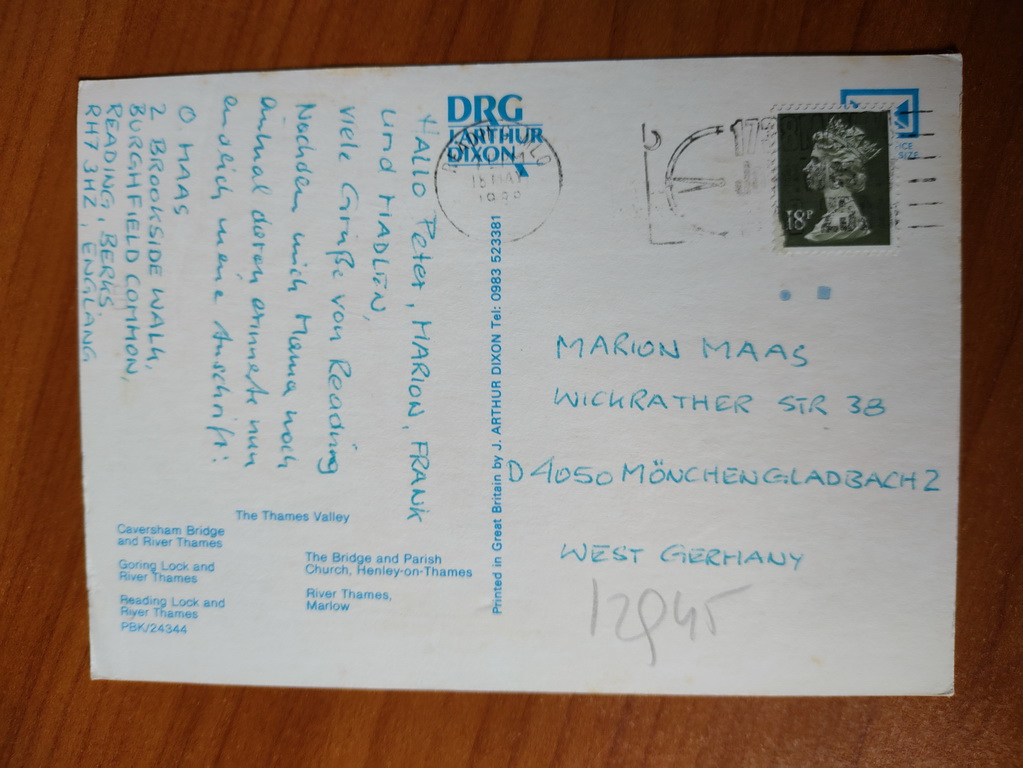 DRG
J. ARTHUR
DIXON
HALLO Peter, MARION, FRANK
und MADLEN,
viele Grüße von Reading
Nachdem mich Mama noch
einmal daran erinnerte nun
endlich meine Anschrift:
O. MAAS
2 BROOKSIDE WALK,
BURGHFIELD COMMON,
READING, BERKS.
RH7 3HZ, ENGLAND
The Thames Valley
Caversham Bridge
and River Thames
Goring Lock and
River Thames
Reading Lock and
River Thames
PBK/24344
The Bridge and Parish
Church, Henley-on-Thames
River Thames,
Marlow
Printed in Great Britain by J. ARTHUR DIXON Tel: 0983 523381
18P
MARION MAAS
WICKRATHER STR 38
D 4050 MÖNCHENGLADBACH 2
WEST GERMANY